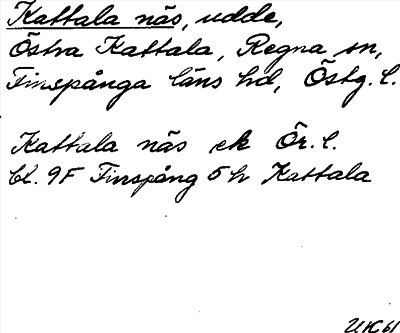 Kattala näs, udde,
Östra Kattala, Regna sn,
Finspånga läns hd, Östg. l.
Kattala näs ek Ör. l.
bl. 9F Finspång 5 h Kattala
UK 61